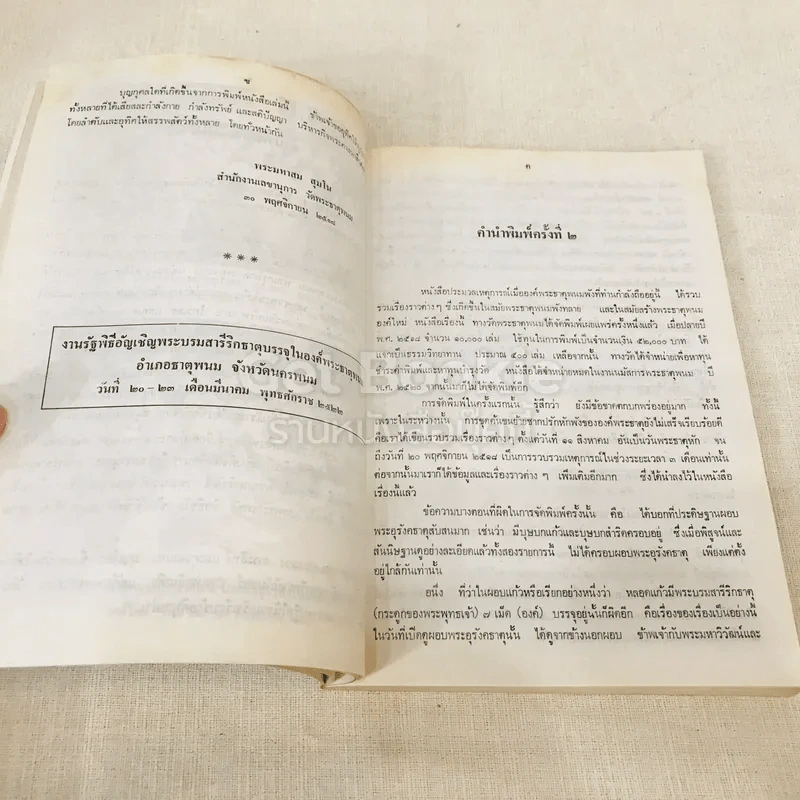 ข
บุญกุศลใดที่เกิดขึ้นจากการพิมพ์หนังสือเล่มนี้ ข้าพเจ้าขออุทิศให้
ทั้งหลายที่ได้เสียสละกำลังกาย กำลังทรัพย์ และสติปัญญา บริหารกิจพระศาสนา
โดยลำดับและอุทิศให้สรรพสัตว์ทั้งหลาย โดยทั่วหน้ากัน
พระมหาสม สุมโน
สำนักงานเลขานุการ วัดพระธาตุพนม
๓๐ พฤศจิกายน ๒๕๑๘
***
งานรัฐพิธีอัญเชิญพระบรมสารีริกธาตุบรรจุในองค์พระธาตุพนม
อำเภอธาตุพนม จังหวัดนครพนม
วันที่ ๒๐-๒๓ เดือนมีนาคม พุทธศักราช ๒๕๒๒
ค
คำนำพิมพ์ครั้งที่ ๒
หนังสือประมวลเหตุการณ์เมื่อองค์พระธาตุพนมพังที่ท่านกำลังถืออยู่นี้ ได้รวบ
รวมเรื่องราวต่าง ๆ ซึ่งเกิดขึ้นในสมัยพระธาตุพนมพังทลาย และในสมัยสร้างพระธาตุพนม
องค์ใหม่ หนังสือเรื่องนี้ ทางวัดพระธาตุพนมได้จัดพิมพ์เผยแพร่ครั้งหนึ่งแล้ว เมื่อปลายปี
พ.ศ. ๒๕๑๘ จำนวน ๑๐,๐๐๐ เล่ม ใช้ทุนในการพิมพ์เป็นจำนวนเงิน ๕๒,๐๐๐ บาท ได้
แจกเป็นธรรมวิทยาทาน ประมาณ ๕๐๐ เล่ม เหลือจากนั้น ทางวัดได้จำหน่ายเพื่อหาทุน
ชำระค่าพิมพ์และหาทุนบำรุงวัด หนังสือได้จำหน่ายหมดในงานนมัสการพระธาตุพนม ปี
พ.ศ. ๒๕๒๐ จากนั้นมาก็ไม่ได้จัดพิมพ์อีก
การจัดพิมพ์ในครั้งแรกนั้น รู้สึกว่า ยังมีข้อขาดตกบกพร่องอยู่มาก ทั้งนี้
เพราะในระหว่างนั้น การขุดค้นขนย้ายซากปรักหักพังขององค์พระธาตุยังไม่เสร็จเรียบร้อยดี
คือเราได้เขียนรวบรวมเรื่องราวต่างๆ ตั้งแต่วันที่ ๑๑ สิงหาคม อันเป็นวันพระธาตุหัก จน
ถึงวันที่ ๒๐ พฤศจิกายน ๒๕๑๘ เป็นการรวบรวมเหตุการณ์ในช่วงระยะเวลา ๓ เดือนเท่านั้น
ต่อจากนั้นมาเราก็ได้ข้อมูลและเรื่องราวต่าง ๆ เพิ่มเติมอีกมาก ซึ่งได้นำลงไว้ในหนังสือ
เรื่องนี้แล้ว
ข้อความบางตอนที่ผิดในการจัดพิมพ์ครั้งนั้น คือ ได้บอกที่ประดิษฐานผอบ
พระอุรังคธาตุสับสนมาก เช่นว่า มีบุษบกแก้วและบุษบกสำริดครอบอยู่ ซึ่งเมื่อพิสูจน์และ
สันนิษฐานดูอย่างละเอียดแล้วทั้งสองรายการนี้ ไม่ได้ครอบผอบพระอุรังคธาตุ เพียงแต่ตั้ง
อยู่ใกล้กันเท่านั้น
อนึ่ง ที่ว่าในผอบแก้วหรือเรียกอย่างหนึ่งว่า หลอดแก้วมีพระบรมสารีริกธาตุ
(กระดูกของพระพุทธเจ้า) ๗ เม็ด (องค์) บรรจุอยู่นั้นก็ผิดอีก คือเรื่องของเรื่องเป็นอย่างนี้
ในวันที่เปิดดูผอบพระอุรังคธาตุนั้น ได้ดูจากข้างนอกผอบ ข้าพเจ้ากับพระมหาวิวัฒน์และ